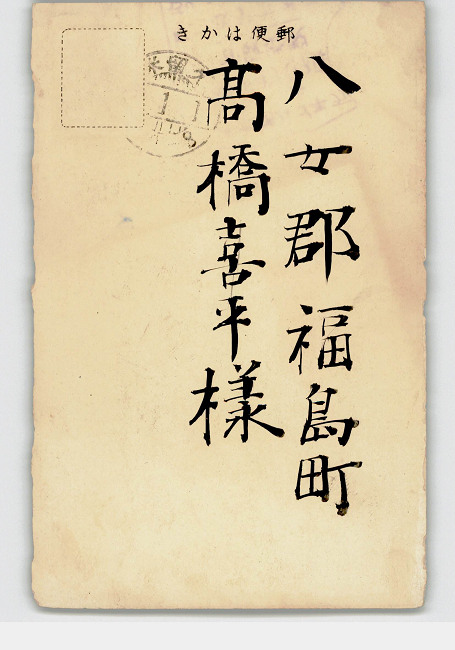 郵便はかき
八女郡福島町
髙橋喜平様
久留米
1 1